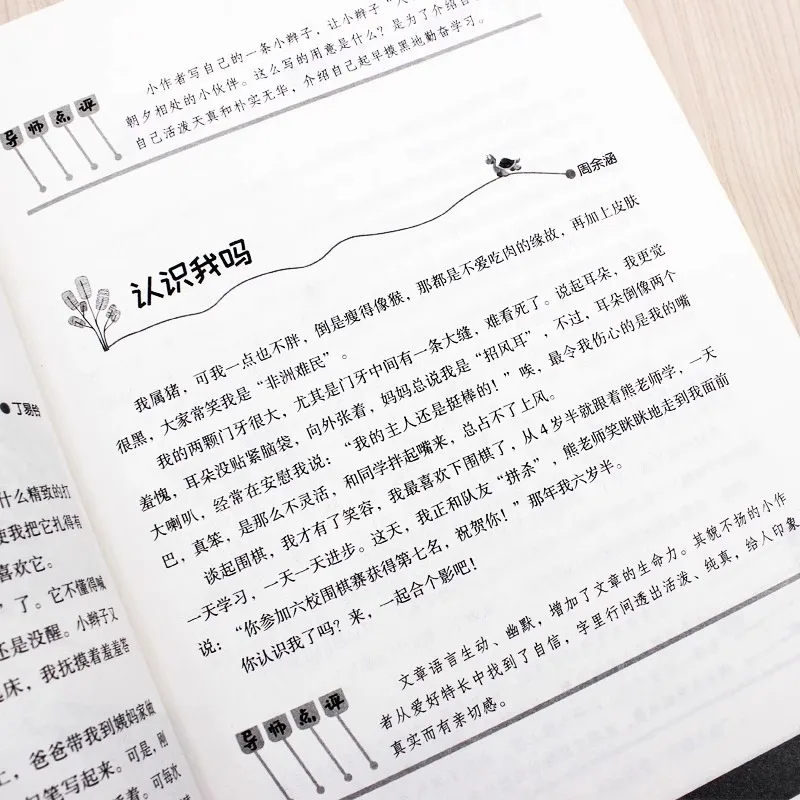 小作者写自己的一条小辫子，让小辫子“人
朝夕相处的小伙伴。这么写的用意是什么？是为了介绍自
自己活泼天真和朴实无华，介绍自己起早摸黑地勤奋学习。
导师点评
周余涵
认识我吗
我属猪，可我一点也不胖，倒是瘦得像猴，那都是不爱吃肉的缘故，再加上皮肤
很黑，大家常笑我是“非洲难民”。
我的两颗门牙很大，尤其是门牙中间有一条大缝，难看死了。说起耳朵，我更觉
羞愧，耳朵没贴紧脑袋，向外张着，妈妈总说我是“招风耳”，不过，耳朵倒像两个
大喇叭，经常在安慰我说：“我的主人还是挺棒的！”唉，最令我伤心的是我的嘴
巴，真笨，是那么不灵活，和同学拌起嘴来，总占不了上风。
谈起围棋，我才有了笑容，我最喜欢下围棋了，从4岁半就跟着熊老师学，一天
一天学习，一天一天进步。这天，我正和队友“拼杀”，熊老师笑眯眯地走到我面前
说：“你参加六校围棋赛获得第七名，祝贺你！”那年我六岁半。
你认识我了吗？来，一起合个影吧！
文章语言生动、幽默，增加了文章的生命力。其貌不扬的小作
者从爱好特长中找到了自信，字里行间透出活泼、纯真，给人印象
真实而有亲切感。
导师点评
什么精致的打
使我把它扎得有
喜欢它。
”了。它不懂得喊
还是没醒。小辫子又
起床，我抚摸着羞羞答
上，爸爸带我到姨妈家做
笔写起来。可是，刚
着。可每次